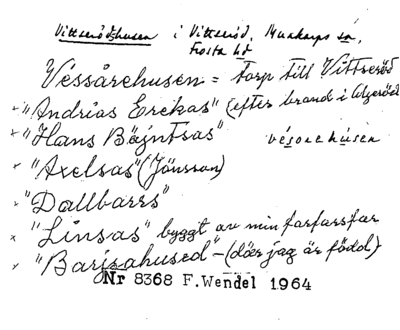 Vittserödshusen i Vittseröd, Munkarps sn,
Frosta hd
Vessårehusen = torp till Vittseröd
x "Andrias Erekas" (efter brand i Algeröd
x "Hans Bäjntsas" vésorehúsen
x "Axelsas" (Jönsson)
x "Dallbarrs"
x "Linsas" byggt av min farfarsfar
x "Barizahused" – (där jag är född)
Nr 8368 F.Wendel 1964